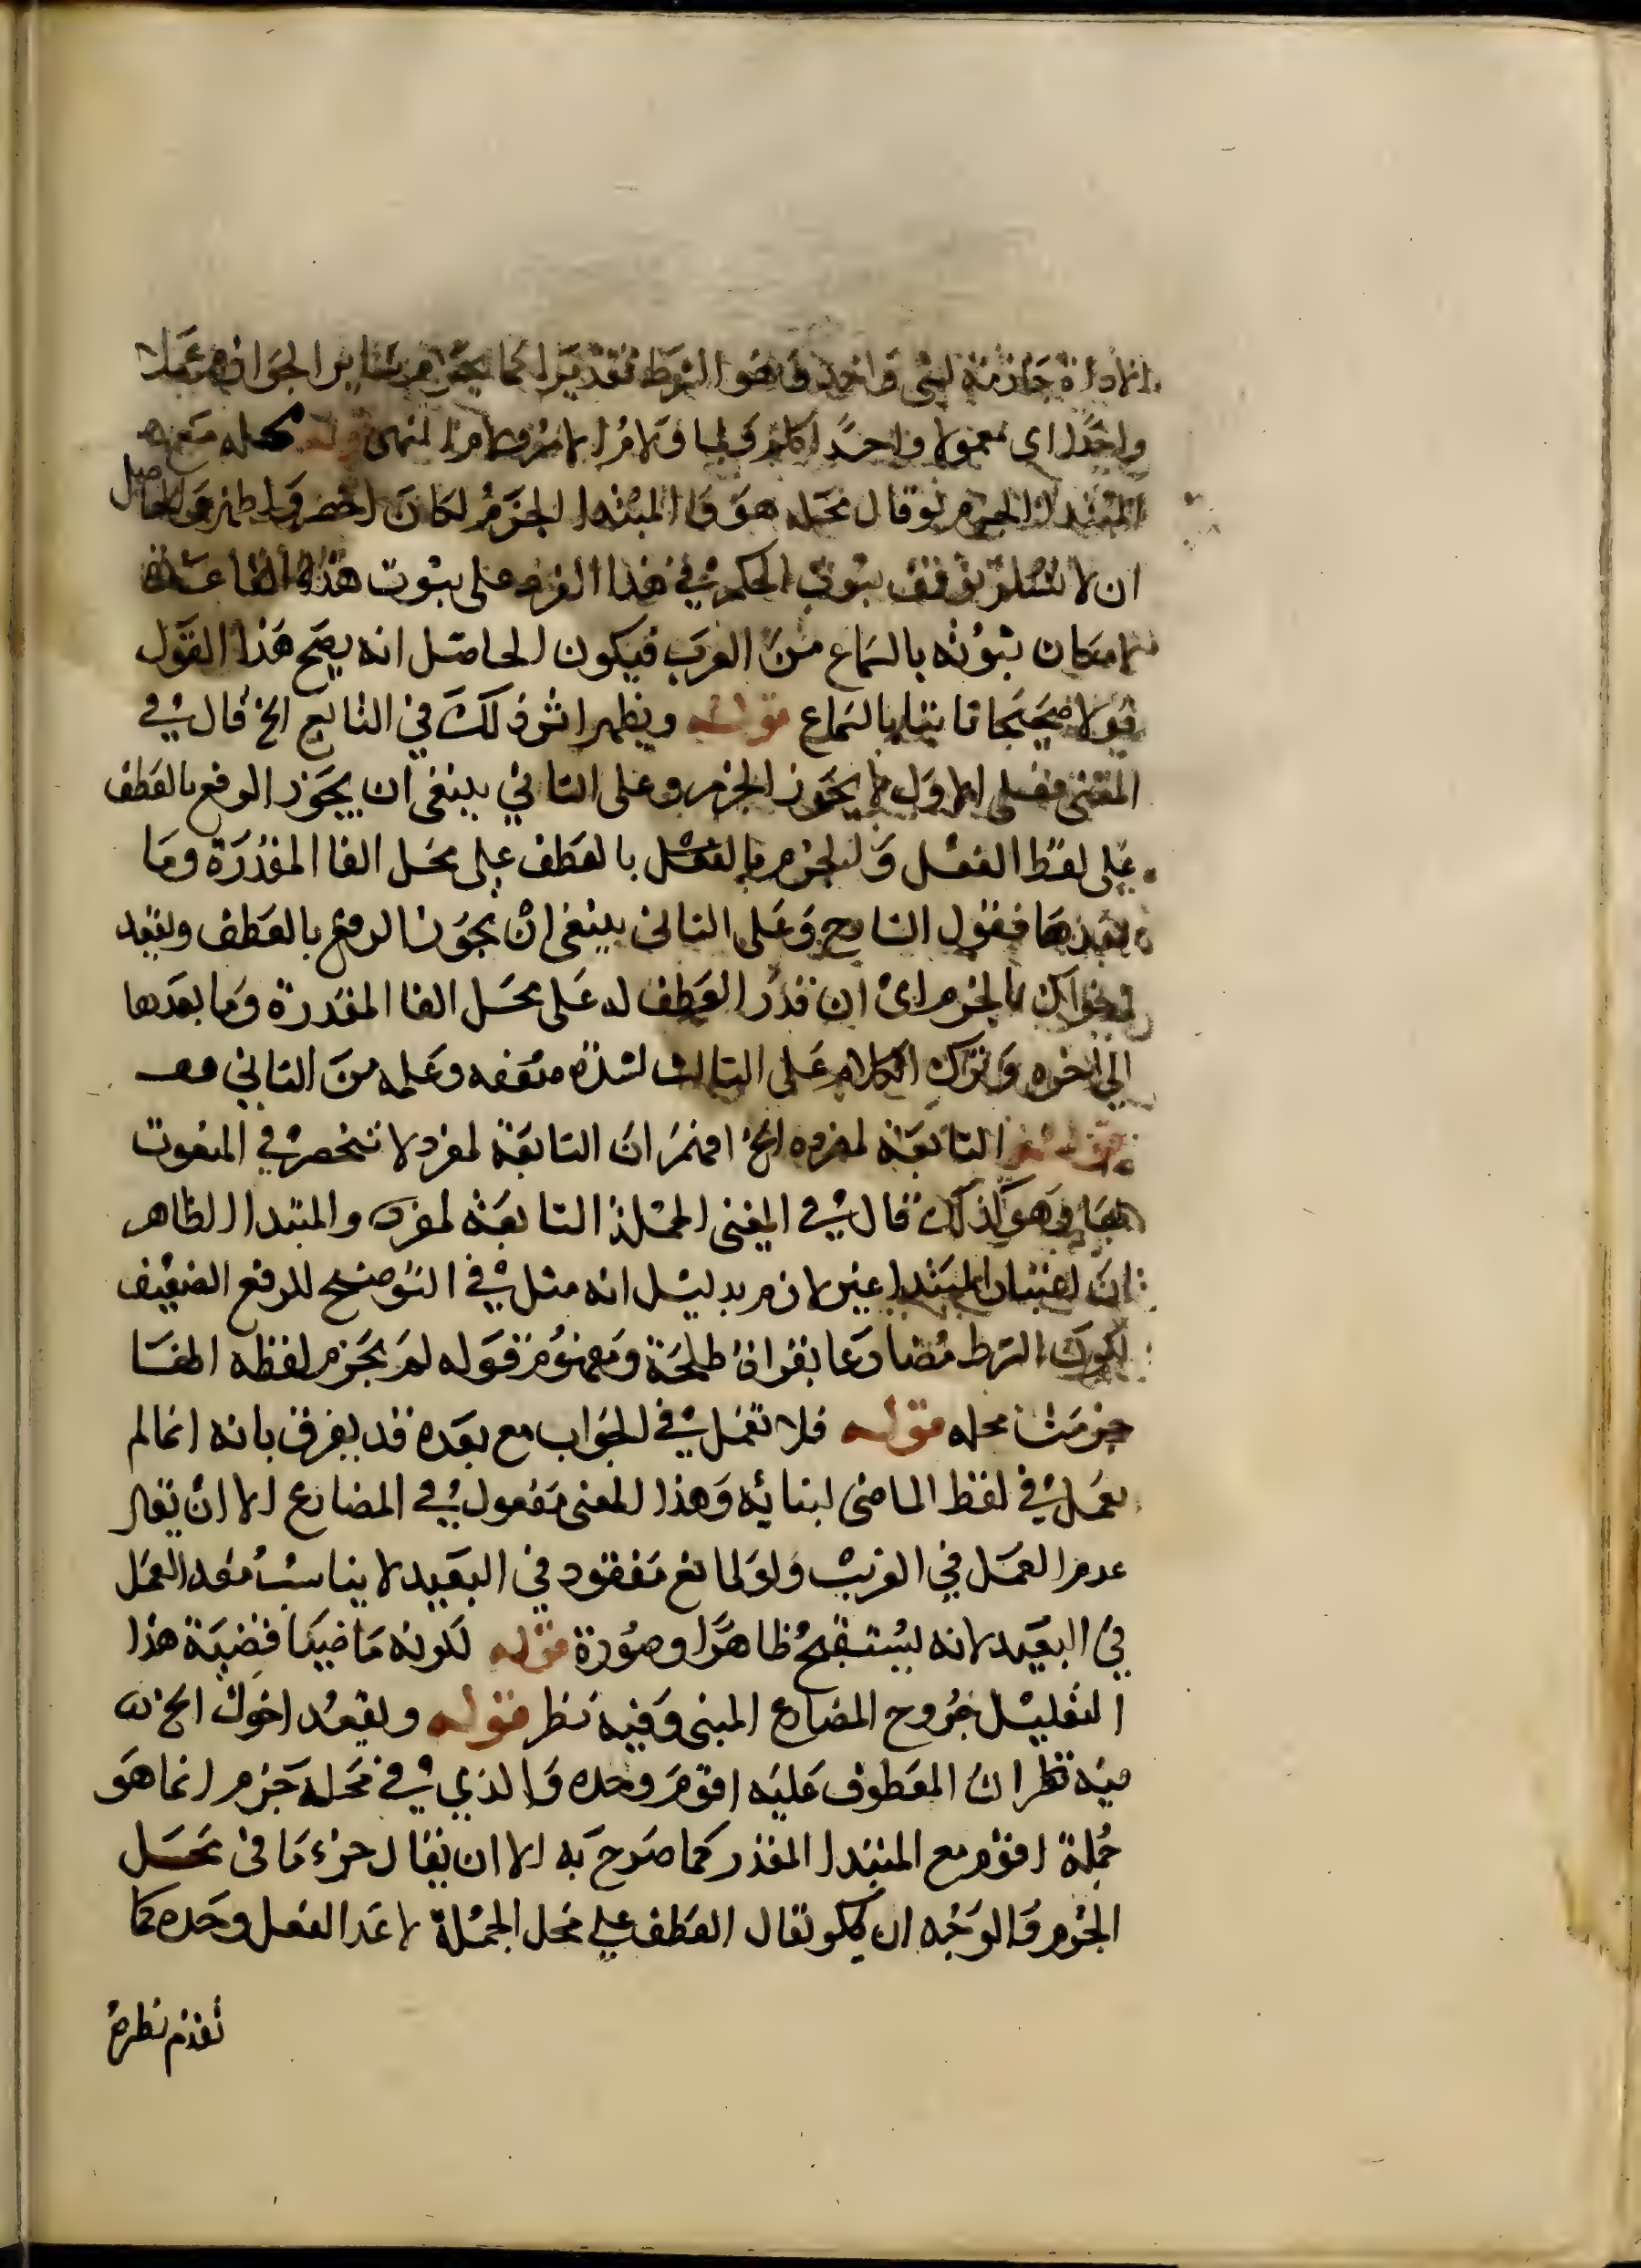 اداة جازمة لشي واحد وهو الشرط تقديرا كما يجزم سائر الجوازم عملا
واحدا اي معمولا واحدا كلم ولما ولام الامر ولام النهي قوله محله مع
المبتدا الجزم لو قال محله هو والمبتدا الجزم لكان اخصر واظهر والحاصل
ان لا نسلم توقف ثبوت الحكم في هذا الفرد على ثبوت هذه القاعدة
لامكان ثبوته بالسماع من العرب فيكون الحاصل انه يصح هذا القول
قولا صحيحا ثابتا بالسماع قوله ويظهر اثر ذلك في التابع الخ قال في
المغني فعلى الاول لا يجوز الجزم وعلى الثاني ينبغي ان يجوز الرفع بالعطف
على لفظ الفعل والجزم بالفعل بالعطف على محل الفا المقدرة وما
بعدها فقول الشارح وعلى الثاني ينبغي ان يجوز الرفع بالعطف ويقعد
اخواك بالجزم اي ان قدر العطف له على محل الفا المقدرة وما بعدها
الى اخره وترك الكلام على الثالث لشدة ضعفه وعلمه من الثاني
قوله التابعة لمفرد الخ افهم ان التابعة لمفرد لا تنحصر في المنعوت
بها وهو كذلك قال في المغني الجملة التابعة لمفرد والمبتدا الظاهر
ان اعتبار المبتدا غير لازم بدليل انه مثل في التوضيح للرفع الضعيف
لكون الشرط مضارعا بقراة طلحة ومفهوم قوله لم يجزم لفظه انها
جزمت محله قوله فلا تعمل في الجواب مع بعده قد يفرق بانه انما لم
يعمل في لفظ الماضي لبنائه وهذا المعنى مفعول في المضارع الا ان يقال
عدم العمل في القريب ولو لمانع مفقود في البعيد لا يناسب معه العمل
في البعيد لانه يستقبح ظاهرا وصورة قوله لكونه ماضيا قضية هذا
التعليل خروج المضارع المبني وفيه نظر قوله ويقعد اخواك الخ
فيه نظر لان المعطوف عليه اقوم وحده والذي في محله جزم انما هو
جملة اقوم مع المبتدا المقدر كما صرح به الا ان يقال جزء ما في محل
الجزم والوجه ان يكو يقال العطف على محل الجملة لا على الفعل وحده كما
تقدم نظره